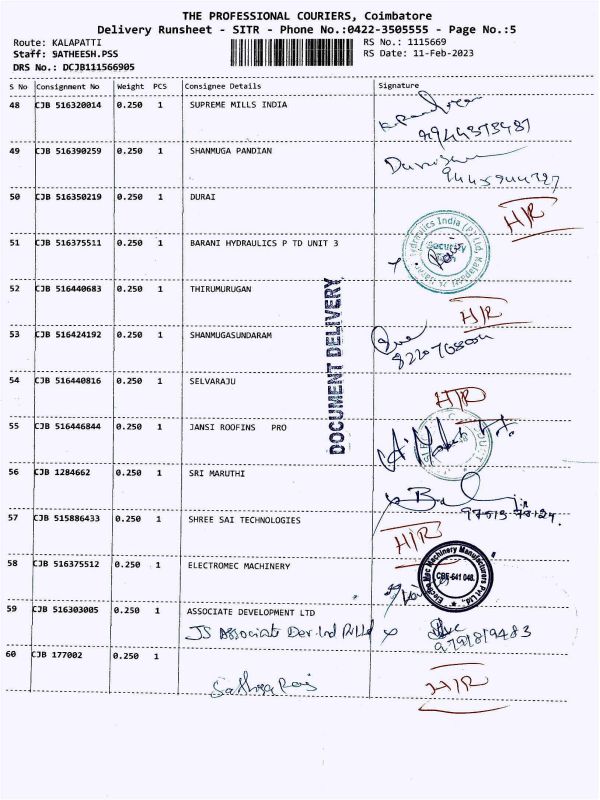 THE PROFESSIONAL COURIERS, Coimbatore
Delivery Runsheet - SITR - Phone No.:0422-3505555 - Page No.:5
Route: KALAPATTI RS No.: 1115669
Staff: SATHEESH.PSS RS Date: 11-Feb-2023
DRS No.: DCJB111566905
S No Consignment No Weight PCS Consignee Details Signature
48 CJB 516320014 0.250 1 SUPREME MILLS INDIA
49 CJB 516390259 0.250 1 SHANMUGA PANDIAN
50 CJB 516350219 0.250 1 DURAI H/R
51 CJB 516375511 0.250 1 BARANI HYDRAULICS P TD UNIT 3
52 CJB 516440683 0.250 1 THIRUMURUGAN H/R
53 CJB 516424192 0.250 1 SHANMUGASUNDARAM
DOCUMENT DELIVERY
54 CJB 516440816 0.250 1 SELVARAJU H/R
55 CJB 516446844 0.250 1 JANSI ROOFINS PRO
56 CJB 1284662 0.250 1 SRI MARUTHI
57 CJB 515886433 0.250 1 SHREE SAI TECHNOLOGIES H/R
58 CJB 516375512 0.250 1 ELECTROMEC MACHINERY
CBE-641 048.
59 CJB 516303005 0.250 1 ASSOCIATE DEVELOPMENT LTD
JS Associate Dev. Ind Pvt Ltd
9791819483
60 CJB 177002 0.250 1 H/R
Sathiya Raj